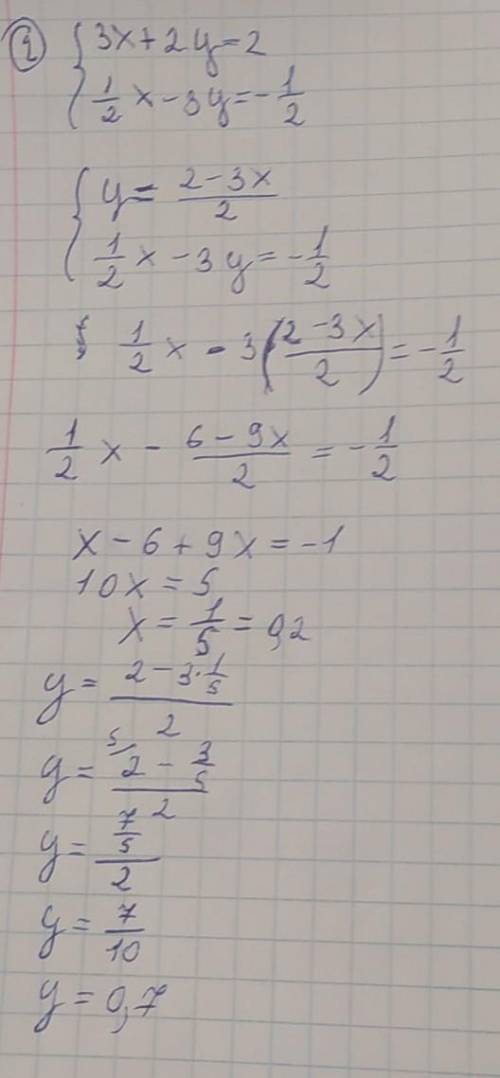 1) { 3x+2y=2
1/2 x-3y=-1/2
{ y= (2-3x)/2
1/2 x-3y=-1/2
1/2 x-3((2-3x)/2)=-1/2
1/2 x - (6-9x)/2 = -1/2
x-6+9x=-1
10x=5
x=1/5=0,2
y= (2-3·1/5)/2
y= (5/ 2 - 3/5)/2
y= (7/5)/2
y= 7/10
y=0,7